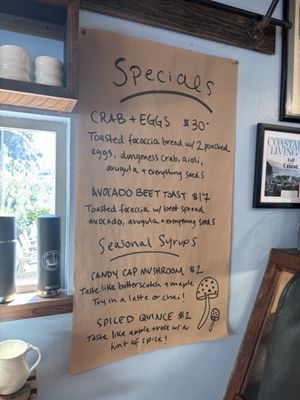 Specials
CRAB + EGGS $30-
Toasted focaccia bread w/ 2 poached
eggs, dungeness crab, aioli,
arugula + everything seeds
AVOCADO BEET TOAST $17
Toasted focaccia w/ beet spread
avocado, arugula + everything seeds
Seasonal Syrups
CANDY CAP MUSHROOM $2
Taste like butterscotch + maple
Try in a latte or chai!
SPICED QUINCE $2
Taste like apple + rose w/ a
hint of spice!
COASTAL
LIVING